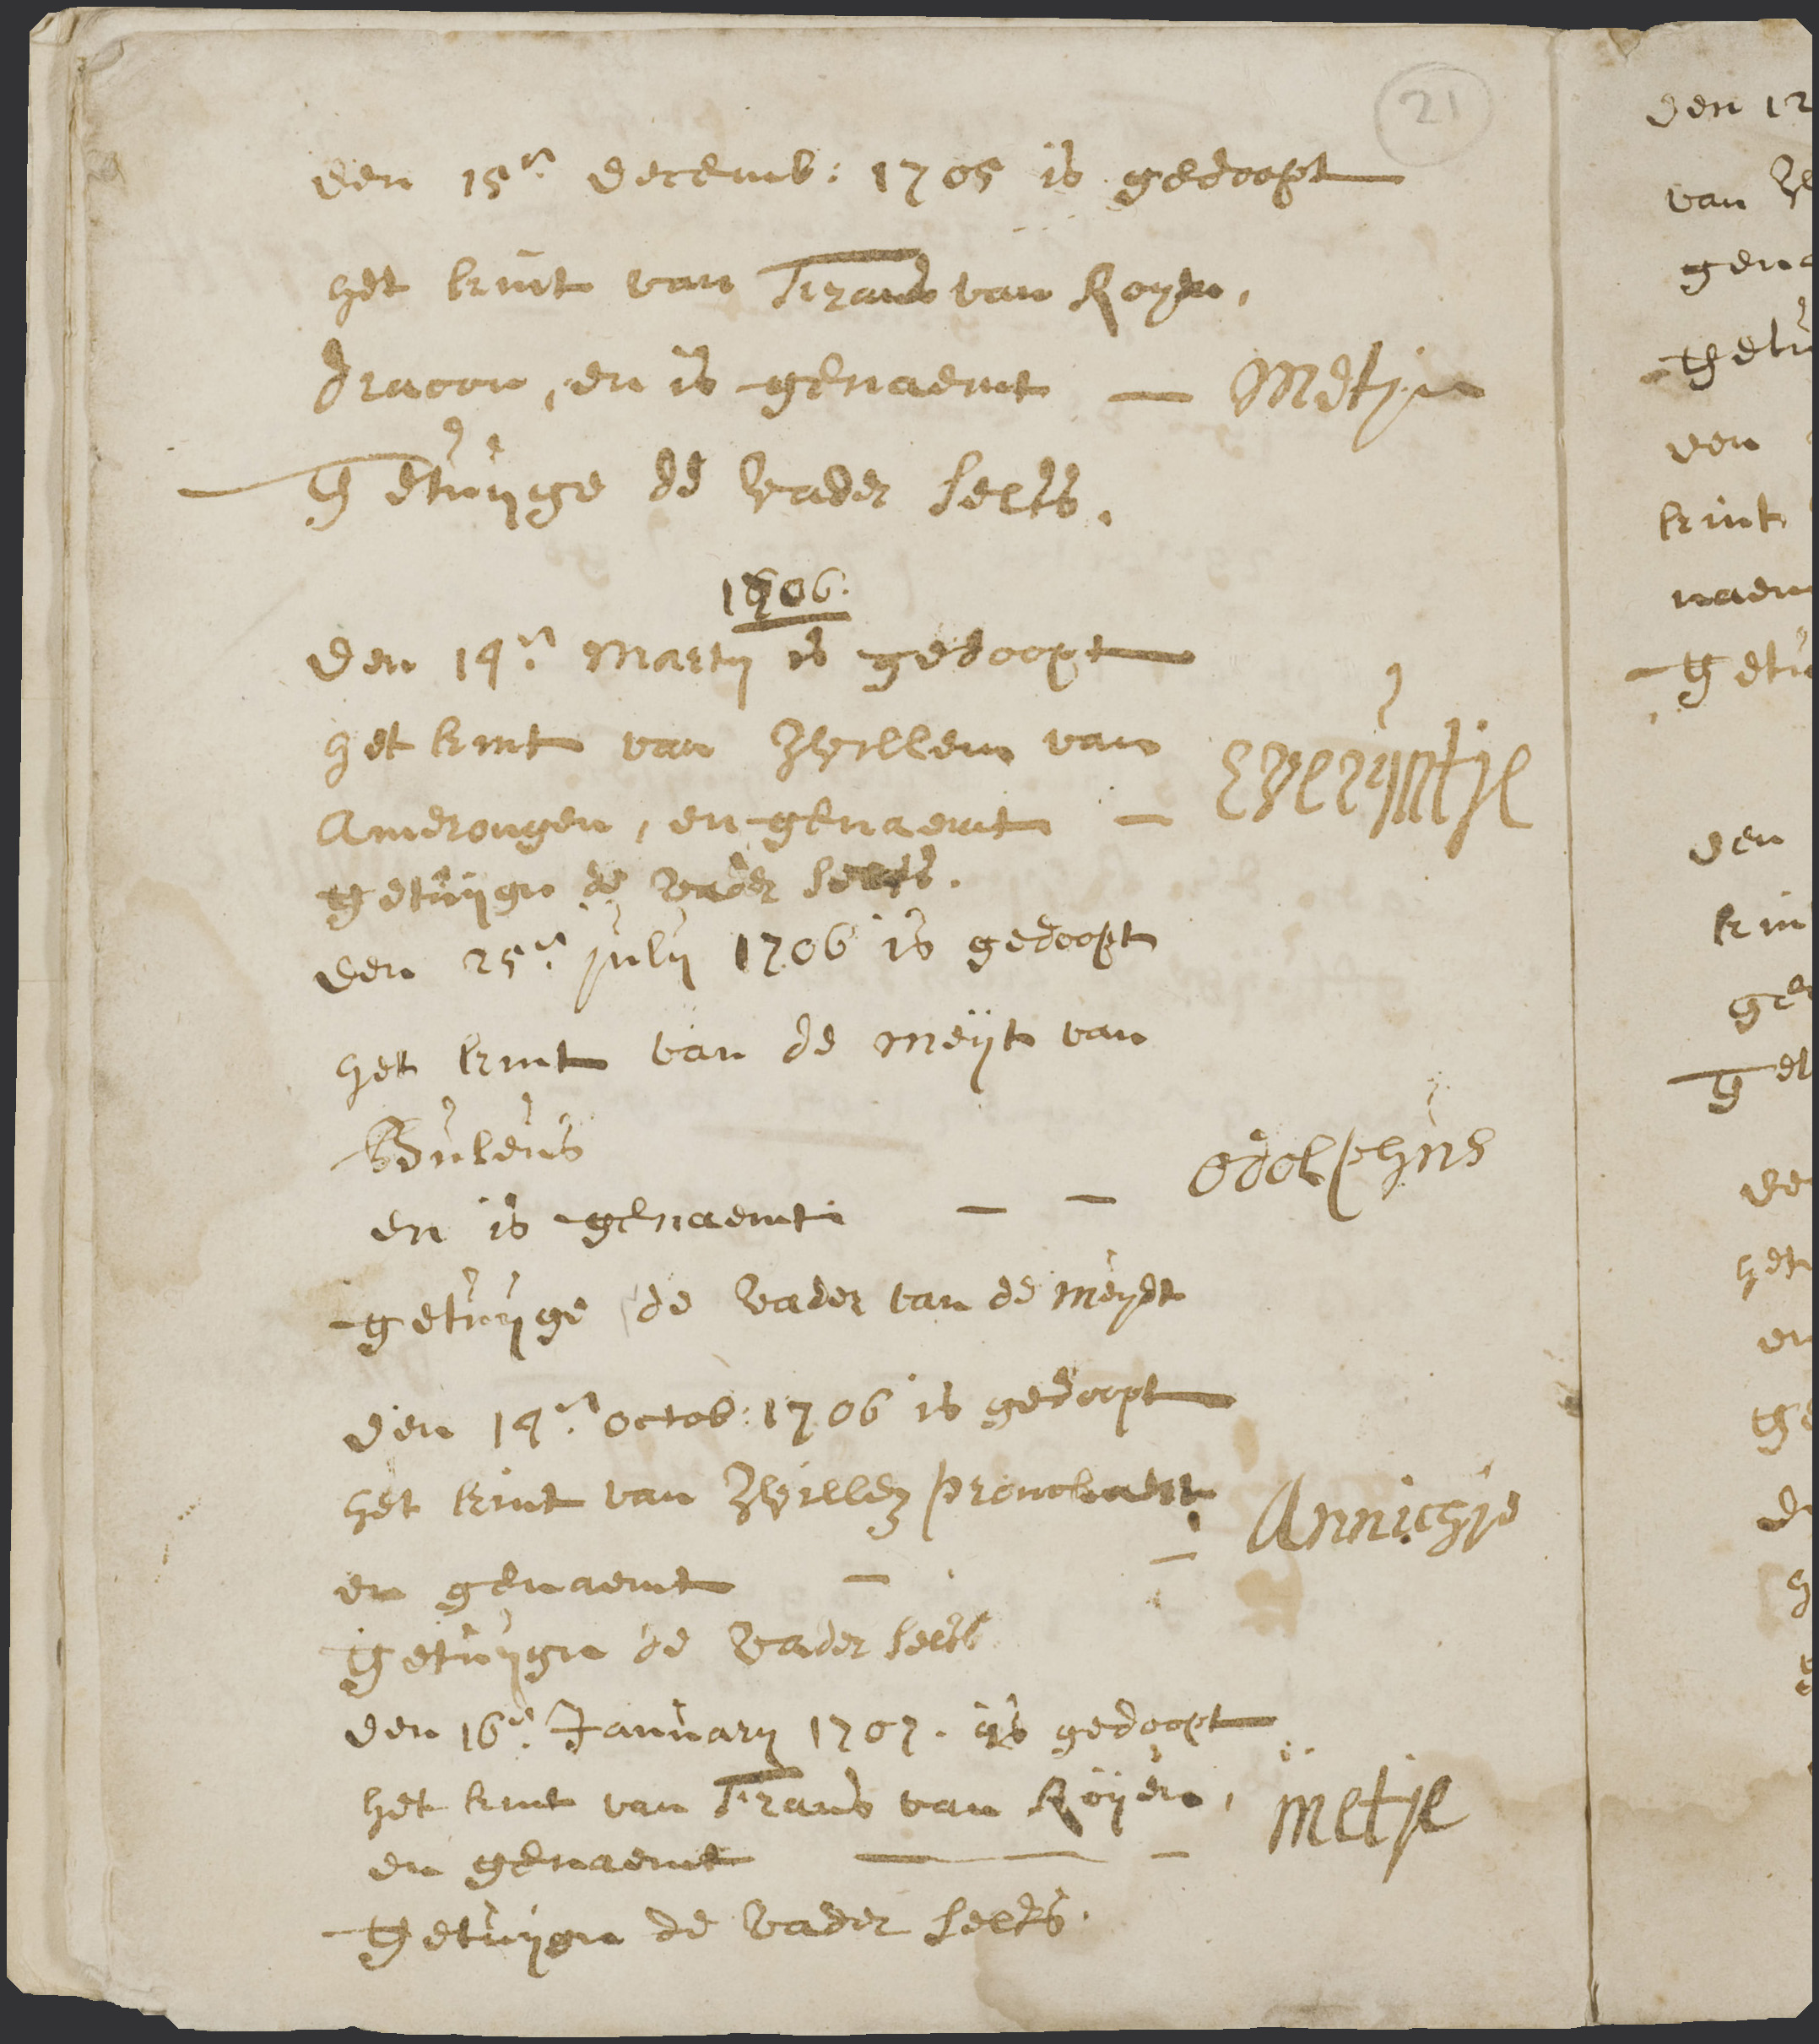 21
den 15.n decemb: 1705 is gedoopt
het kint van Frans van Royen,
dracon, en is genaemt — Metje
Getuijge de vader selfs.
1706.
den 14.n Martij is gedoopt
het kint van Willem van
Amerongen, en genaemt — Everijntje
Getuijge de vader selfs.
den 25.n julij 1706 is gedoopt
het kint van de meijt van
en is genaemt — — odolphus
Getuijge de vader van de meijdt
den 14.n octob: 1706 is gedoopt
het kint van Willem
en genaemt — — Annichje
Getuijge de vader selfs
den 16.n January 1707. is gedoopt
het kint van Frans van Roijen,
en genaemt — — — Metje
Getuijge de vader selfs.
den 12
van
gena
Getu
den
kint
naem
Getu
den
kin
gen
Get
de
het
en
Ge